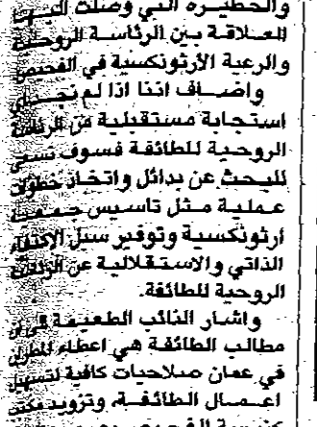 والخطيرة التي وصلت اليها
العلاقة بين الرئاسة الروحية
والرعية الأرثوذكسية في الفحيص
واضاف اننا اذا لم نجد اي
استجابة مستقبلية من الرئاسة
الروحية للطائفة فسوف نسعى
للبحث عن بدائل واتخاذ خطوات
عملية مثل تاسيس جمعية
ارثوذكسية وتوفير سبل الاكتفاء
الذاتي والاستقلالية عن الرئاسة
الروحية للطائفة.
واشار النائب الطعيمة الى ان
مطالب الطائفة هي اعطاء المطران
في عمان صلاحيات كافية لتسهيل
اعمال الطائفة، وتزويد مكتب